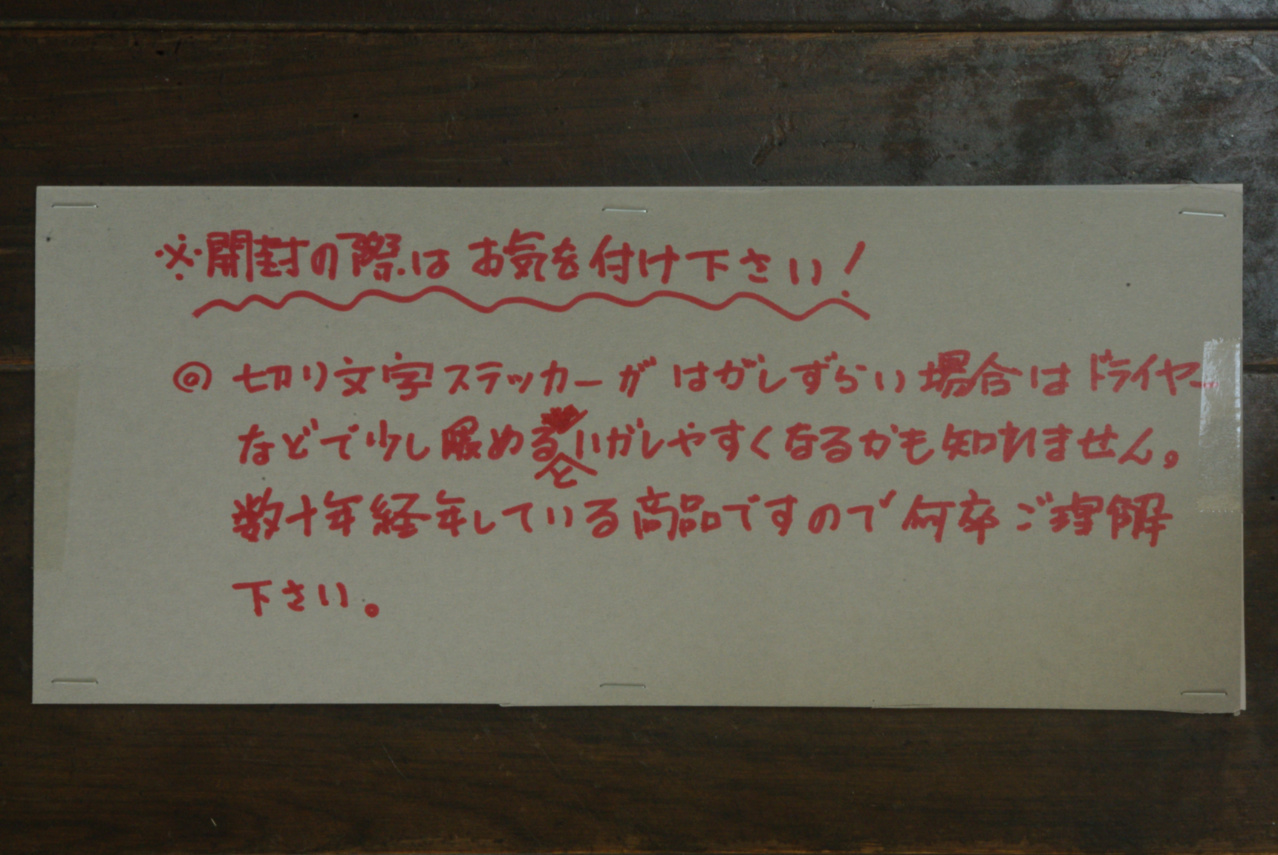 ※開封の際はお気を付け下さい!
◎切り文字ステッカーがはがしずらい場合はドライヤー
などで少し暖めるとハガしやすくなるかも知れません。
数十年経年している商品ですので何卒ご理解
下さい。